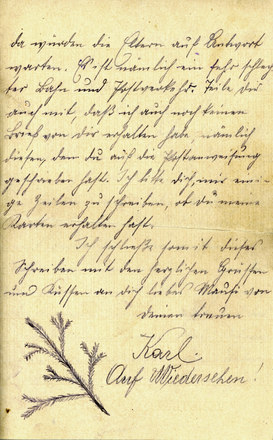 da würden die Eltern auf Antwort
warten. Es ist nämlich ein sehr schlech
ter Bahn und Postverkehr. Teile Dir
auch mit, daß ich auch noch keinen
Brief von Dir erhalten habe, nämlich
diesen, den du auf die Postanweisung
geschrieben hast. Ich bitte dich, mir eini-
ge Zeilen zu schreiben, ob du meine
Karten erhalten hast.
Ich schließe somit dieses
Schreiben mit den herzlichen Grüssen
und Küssen an dich liebes Mausi von
deinem treuen
Karl.
Auf Wiedersehen!